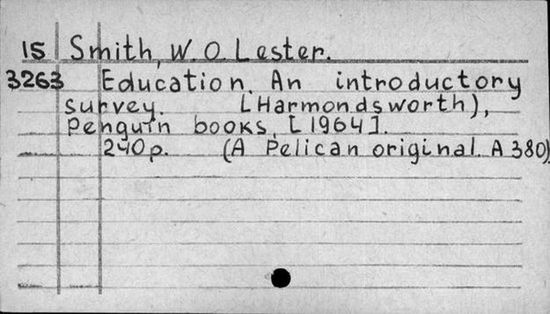 15 Smith, W. O. Lester.
3263 Education. An introductory
survey. [Harmondsworth),
Penguin books, [1964].
240p. (A Pelican original. A 380)